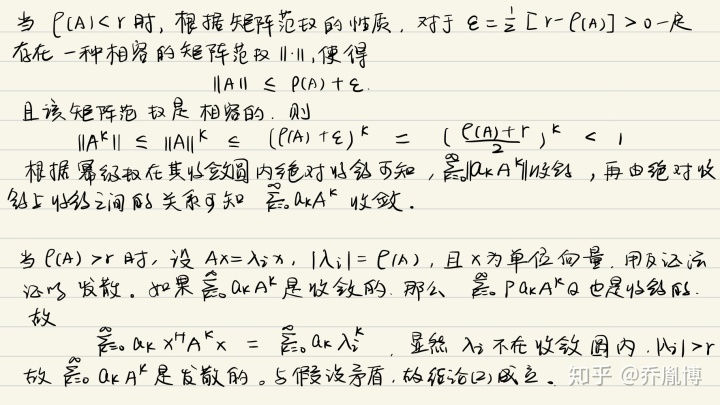 当 ρ(A)<r 时, 根据矩阵范数的性质, 对于 ε=½[r-ρ(A)]>0一定
存在一种相容的矩阵范数 ||·||, 使得
||A|| ≤ ρ(A)+ε.
且该矩阵范数是相容的. 则
||A^k|| ≤ ||A||^k ≤ (ρ(A)+ε)^k = (\frac{ρ(A)+r}{2})^k < 1
根据幂级数在其收敛圆内绝对收敛可知, \sum_{k=0}^{∞}||a_kA^k||收敛, 再由绝对收
敛与收敛之间的关系可知 \sum_{k=0}^{∞} a_kA^k 收敛.
当 ρ(A)>r 时, 设 Ax=λ_ix, |λ_i|=ρ(A), 且 x 为单位向量. 用反证法
证明 发散. 如果 \sum_{k=0}^{∞} a_kA^k 是收敛的. 那么 \sum_{k=0}^{∞} Pa_kA^kQ 也是收敛的.
故
\sum_{k=0}^{∞} a_k x^H A^k x = \sum_{k=0}^{∞} a_k λ_i^k . 显然 λ_i 不在收敛圆内, |λ_i|>r
故 \sum_{k=0}^{∞} a_kA^k 是发散的. 与假设矛盾, 故结论(2)成立.
知乎 @乔胤博